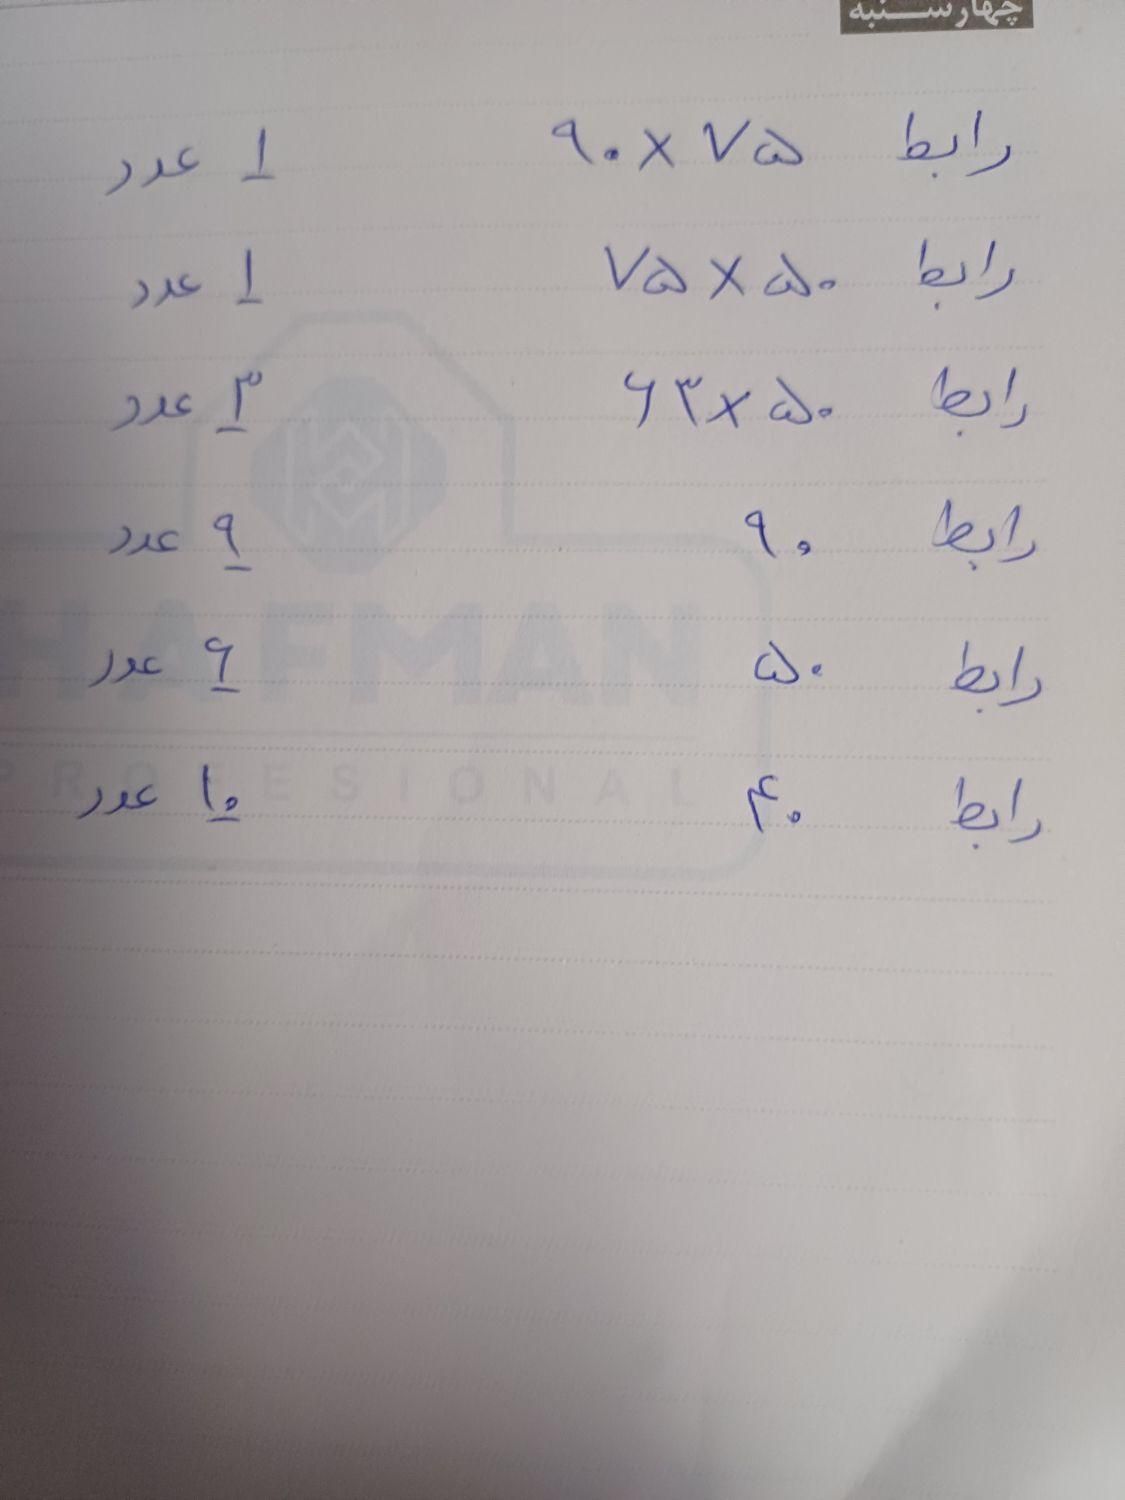 چهارشنبه
رابط ۹۰×۷۵ ۱ عدد
رابط ۷۵×۵۰ ۱ عدد
رابط ۶۳×۵۰ ۳ عدد
رابط ۹۰ ۹ عدد
رابط ۵۰ ۶ عدد
رابط ۴۰ ۱۰ عدد
HAFMAN
PROFESIONAL